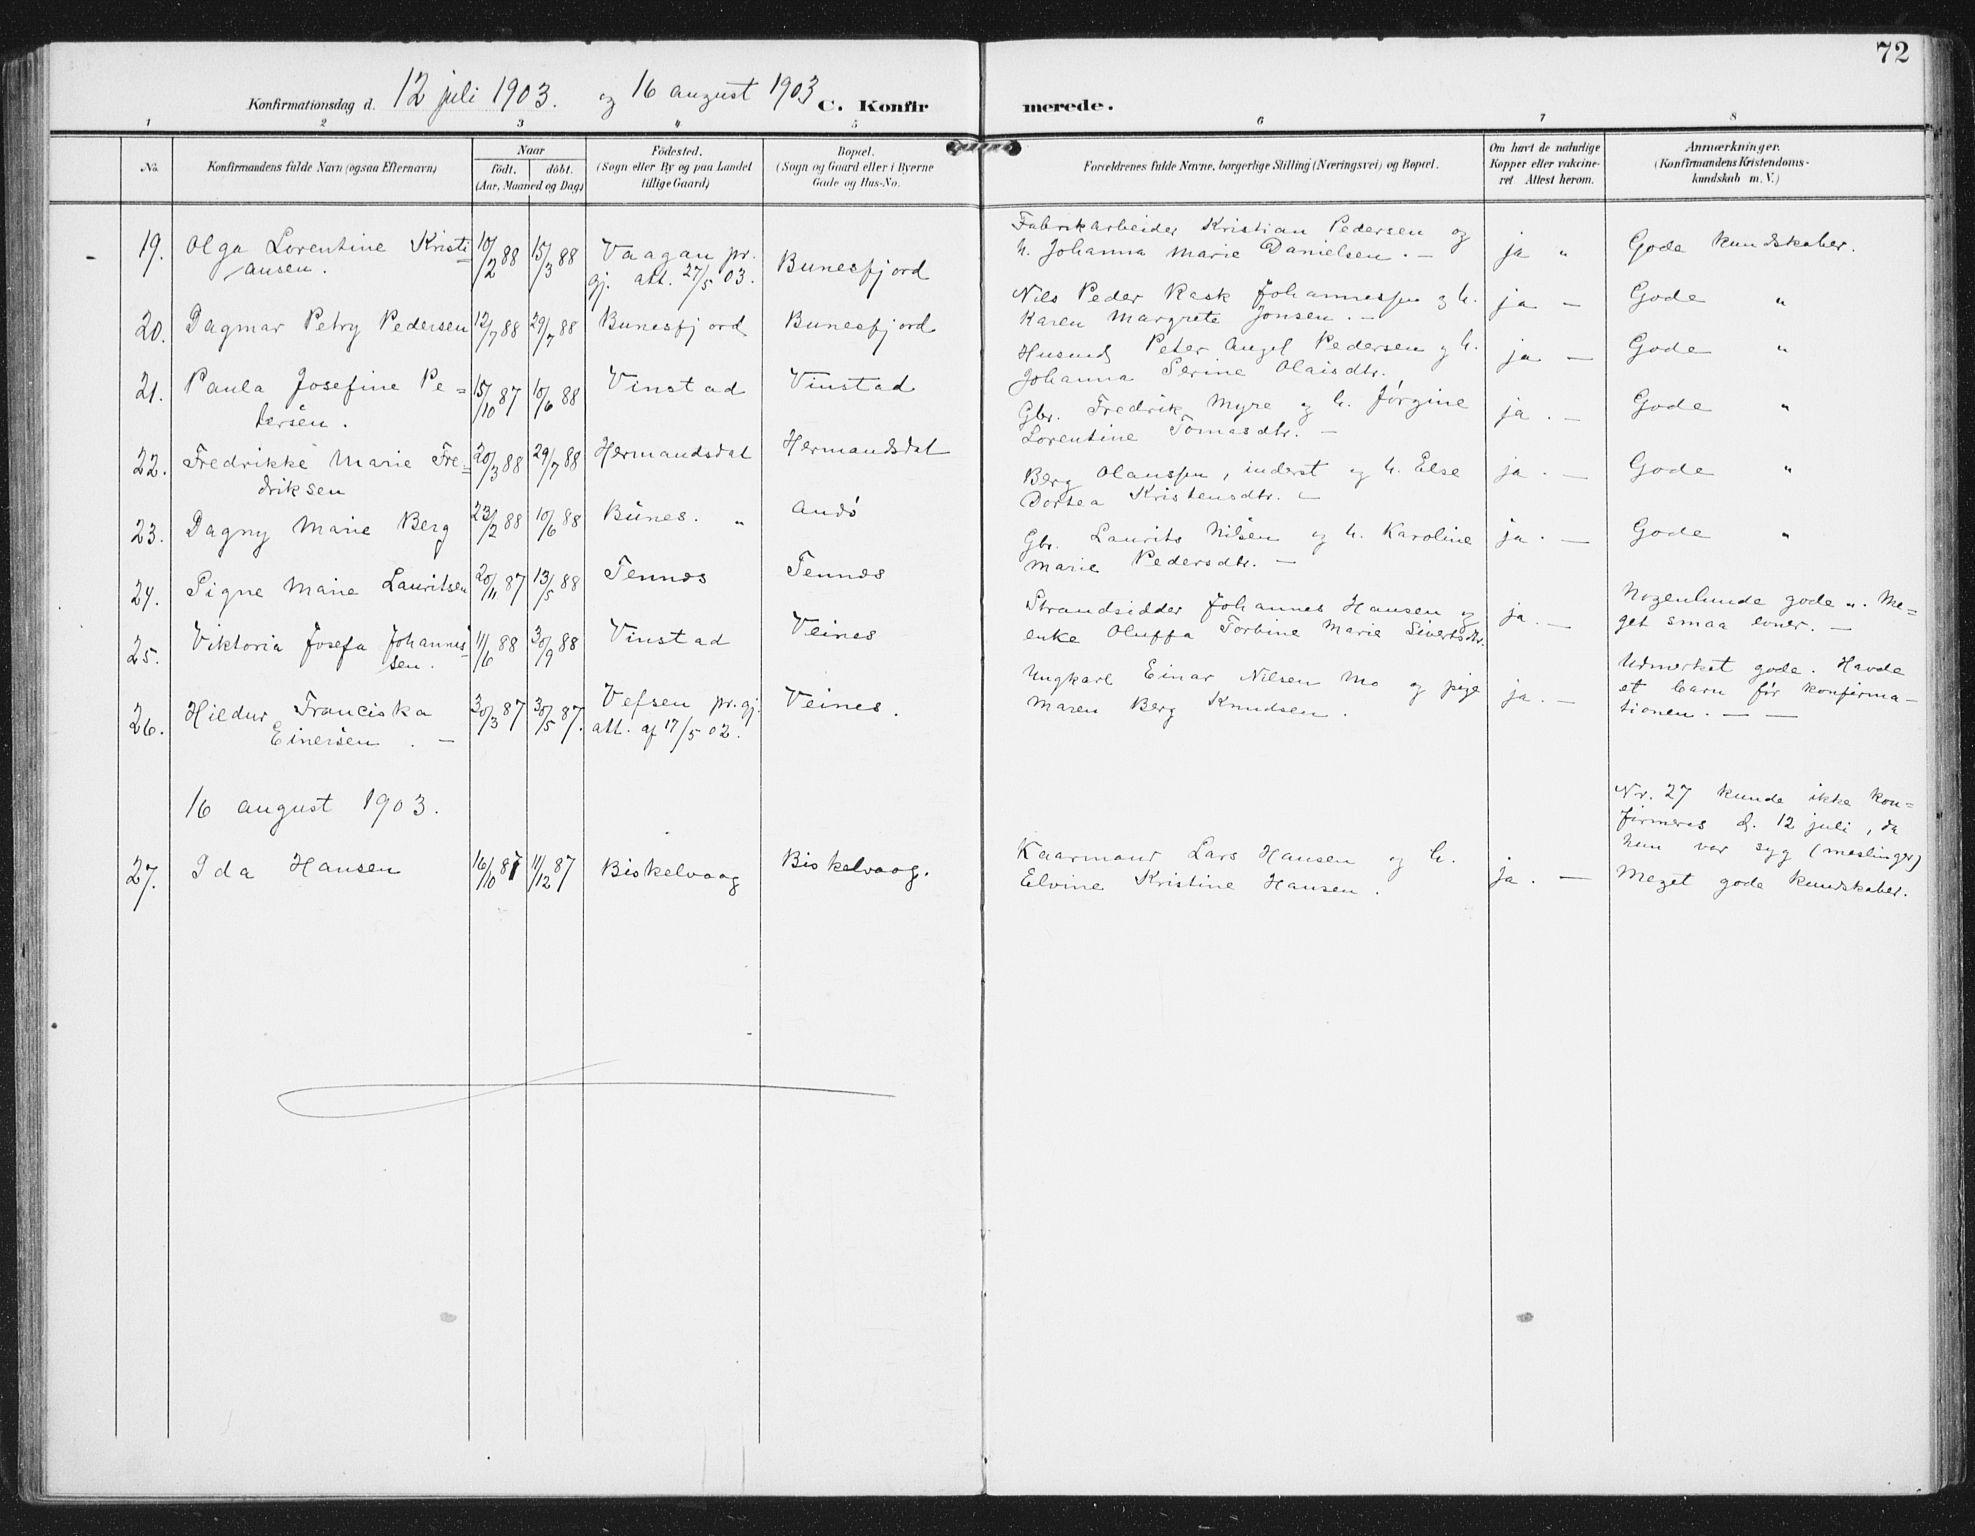 72
Konfirmationsdag d. 12 juli 1903. og 16 august 1903 C. Konfirmerede.
1 2 3 4 5 6 7 8
No. Konfirmandens fulde Navn (ogsaa Efternavn) Naar Födested. Bopæl. Forældrenes fulde Navne, borgerlige Stilling (Næringsvei) og Bopæl. Om havt de naturlige Anmærkninger.
födt. döbt. (Sogn eller By og paa Landet (Sogn og Gaard eller i Byerne Kopper eller vakcine- (Konfirmandens Kristendoms-
(Aar, Maaned og Dag) tillige Gaard) Gade og Hus-No. ret Attest herom. kundskab m. V.)
19. Olga Lorentine Kristi- 10/2 88 15/3 88 Vaagan pr. Bunesfjord Fabrikarbeider Kristian Pedersen og ja " Gode kundskaber.
ansen. gj. att. 27/5 03. h. Johanna Marie Danielsen. -
20. Dagmar Petry Pedersen 12/7 88 29/7 88 Bunesfjord Bunesfjord Nils Peder Rask Johannessen og h. ja - Gode "
Karen Margrete Jonsen. -
21. Paula Josefine Pe- 15/10 87 10/6 88 Vinstad Vinstad Husmd Peter Angel Pedersen og h. ja - Gode "
tersen. Johanna Serine Olaisdtr.
22. Fredrikke Marie Fre- 20/3 88 29/7 88 Hermandsdal Hermandsdal Gbr. Fredrik Myre og h. Jørgine ja. - Gode "
driksen Lorentine Tomasdtr. -
23. Dagny Marie Berg 23/2 88 10/6 88 Bunes. " Andö Berg Olaussen, inderst og h. Else ja. - Gode "
Dortea Kristensdtr. -
24. Signe Marie Lauritsen 20/11 87 13/5 88 Tennæs Tennæs Gbr. Laurits Nilsen og h. Karoline ja. - Gode "
Marie Pedersdtr. -
25. Viktoria Josefa Johannes- 11/6 88 30/9 88 Vinstad Veines Strandsidder Johannes Hansen og ja. - Nogenlunde gode ". Me-
sen. enke Oluffa Torbine Marie Sivertsdtr. get smaa evner. -
26. Hildur Franciska 30/3 87 30/5 87. Vefsen pr. gj. Veines. Ungkarl Einar Nilsen Mo og pige ja. - Udmerket gode. Havde
Einersen. - att. af 17/5 02. Maren Berg Knudsen. et barn før konfirma-
tionen. - -
16 august 1903. Nr. 27 kunde ikke kon-
firmeres d. 12 juli, da
hun var syg (meslinger)
27. Ida Hansen 16/10 87 11/12 87 Biskelvaag Biskelvaag. Kaarmand Lars Hansen og h. ja. - Meget gode kundskaber.
Elvine Kristine Hansen.